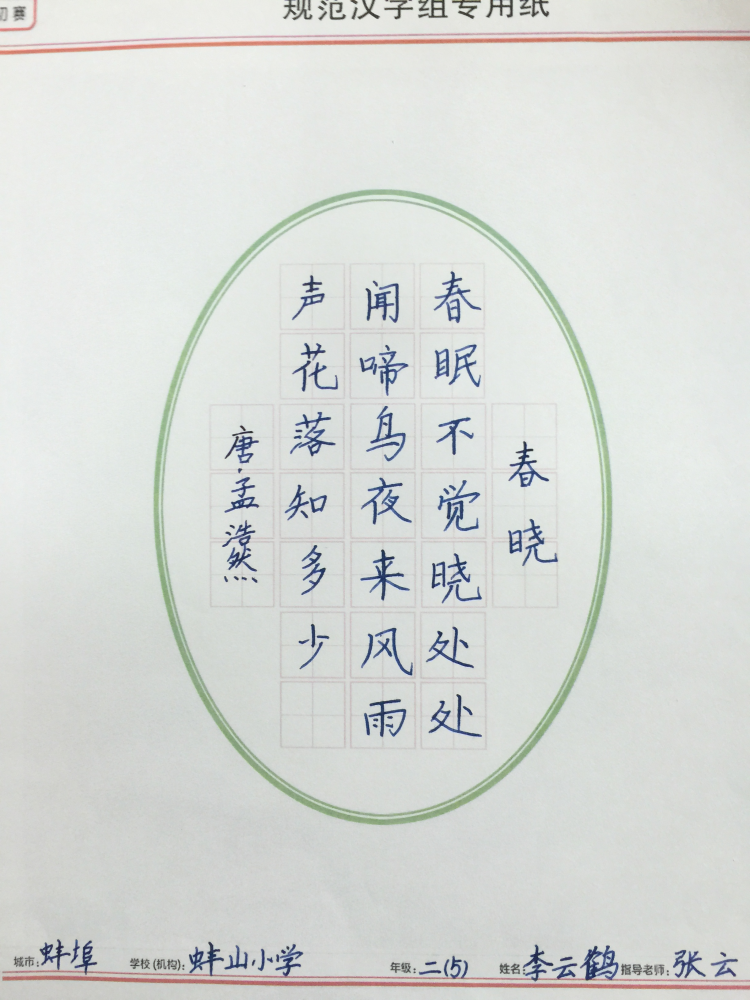 初赛
规范汉字组专用纸
春晓
春眠不觉晓处处
闻啼鸟夜来风雨
声花落知多少
唐·孟浩然
城市:蚌埠 学校(机构):蚌山小学 年级:二(5) 姓名:李云鹤 指导老师:张云